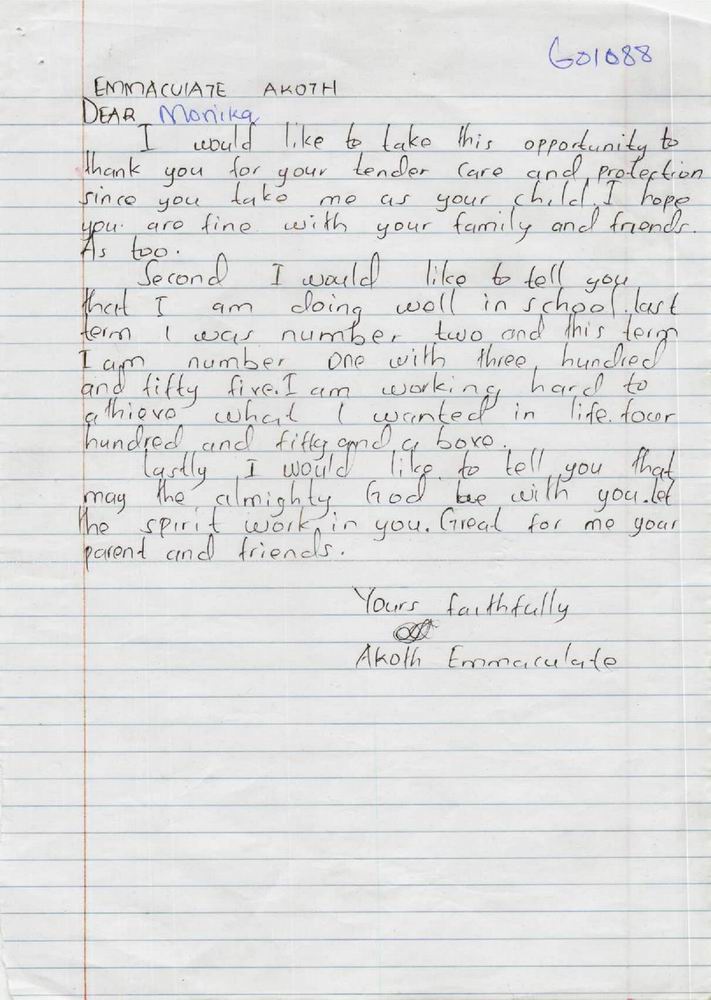 G01088
EMMACULATE AKOTH
DEAR Monika
I would like to take this opportunity to
thank you for your tender care and protection
since you take me as your child. I hope
you are fine with your family and friends.
As too.
Second I would like to tell you
that I am doing well in school. last
term I was number two and this term
I am number one with three hundred
and fifty five. I am working hard to
athieve what I wanted in life. four
hundred and fifty and a bove.
Lastly I would like to tell you that
may the almighty God be with you. let
the spirit work in you. Great for me your
parent and friends.
Yours faithfully
Akoth Emmaculate